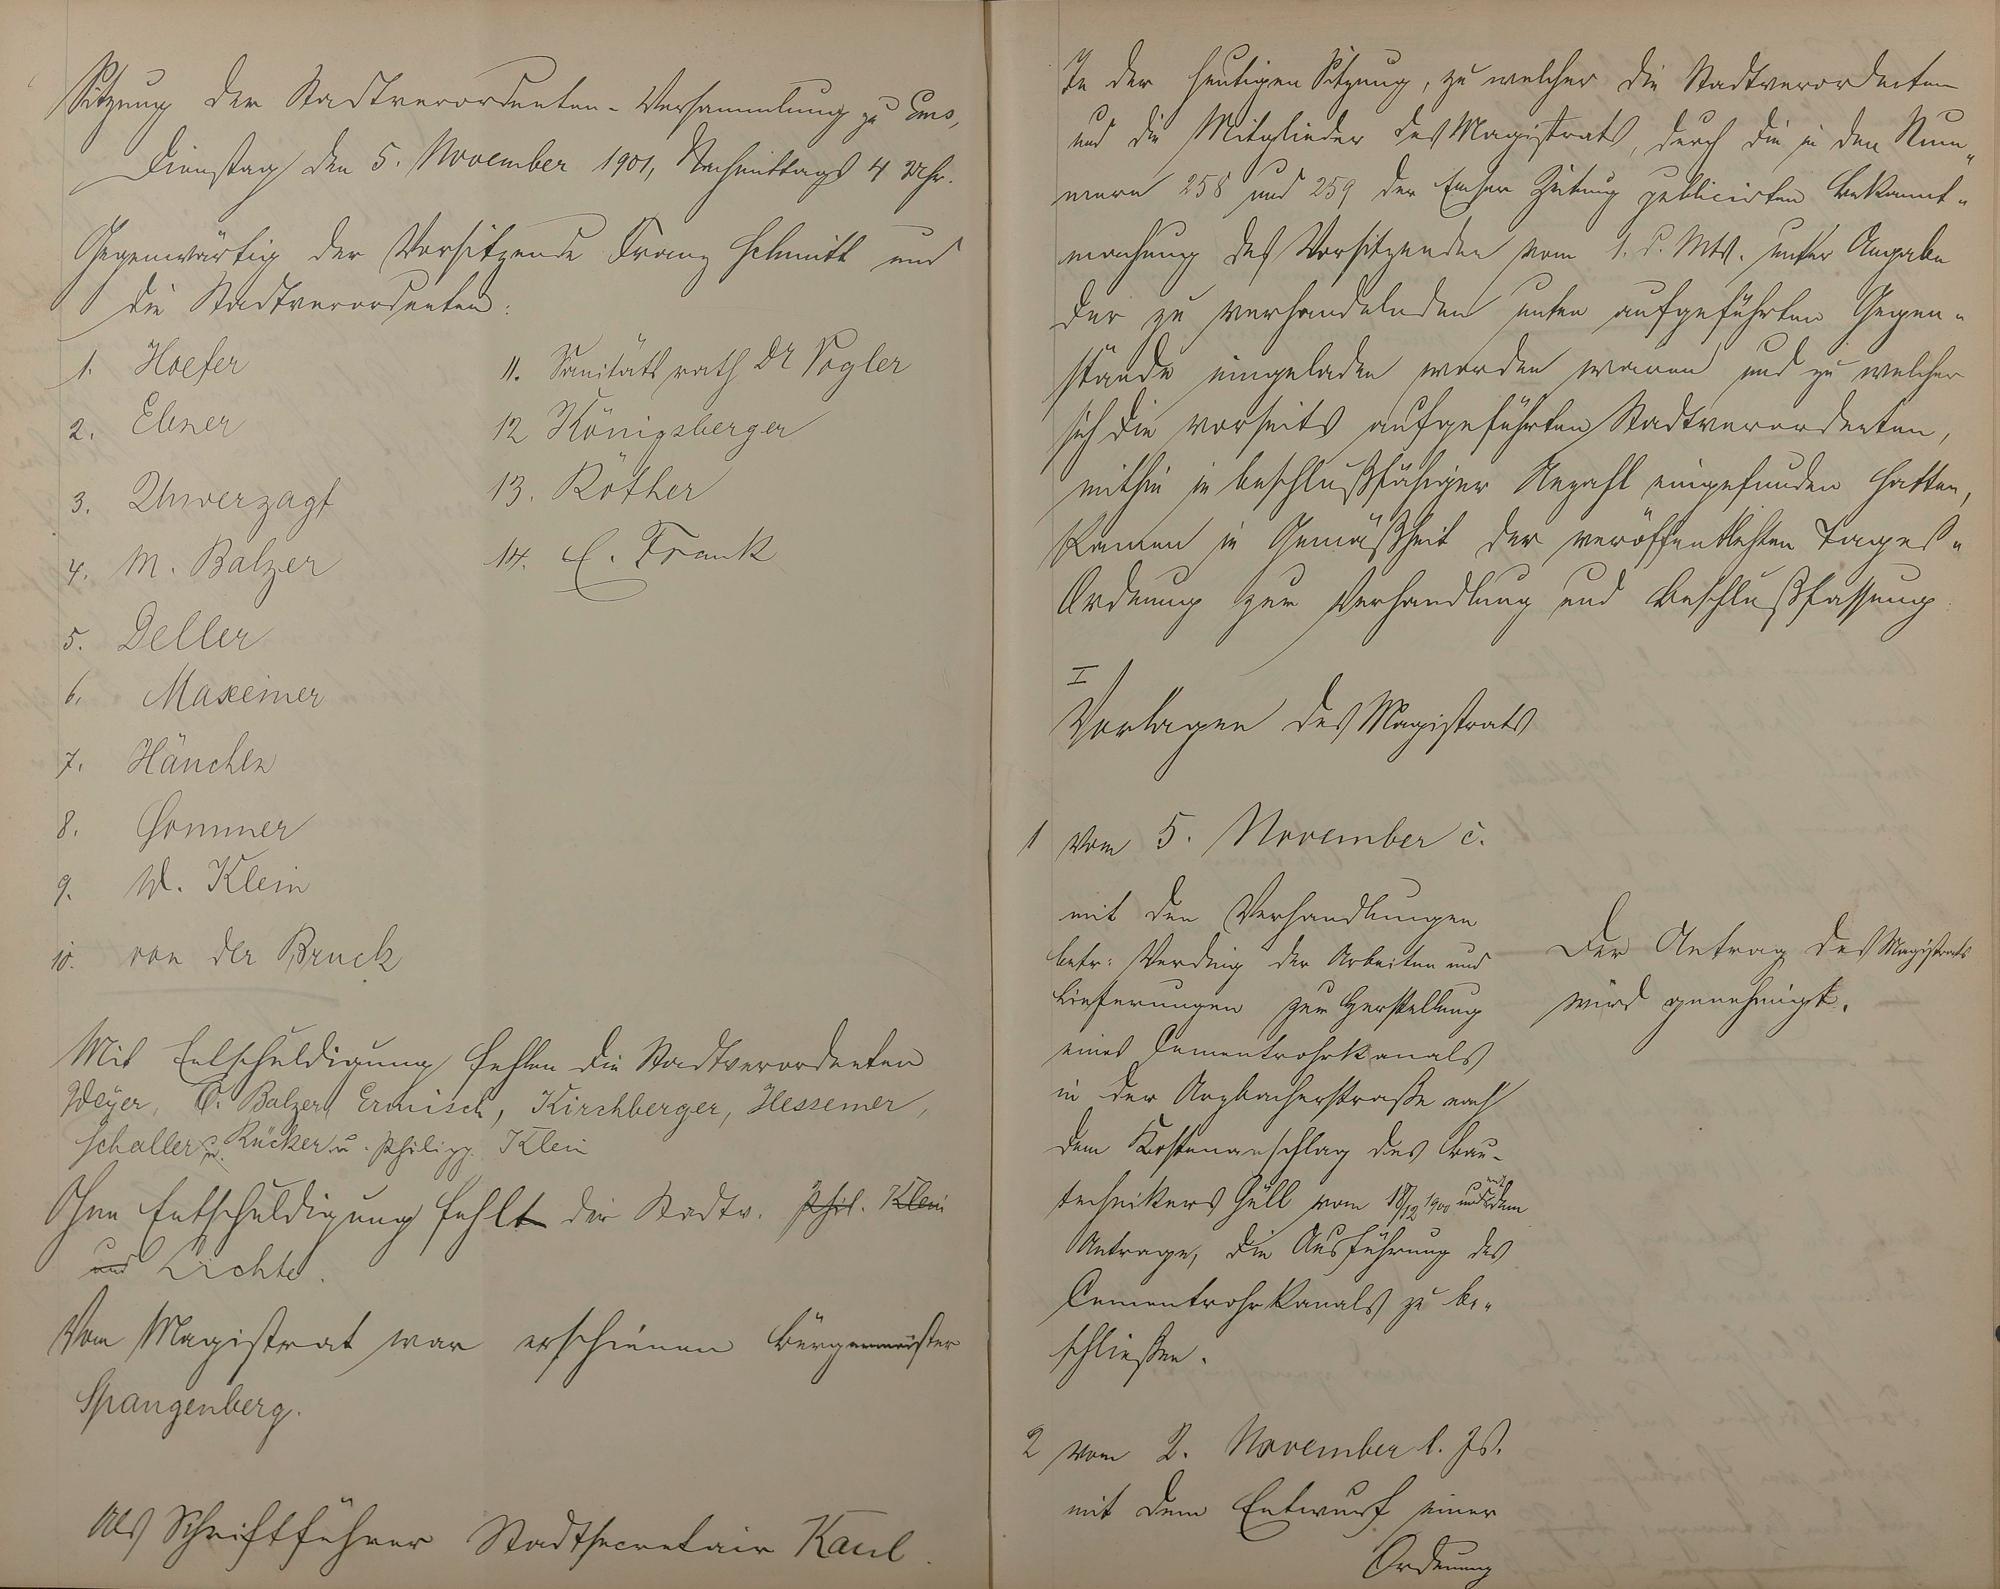 Sitzung der Stadtverordneten-Versammlung zu Ems,
Dienstag den 5. November 1901, Nachmittags 4 Uhr.
Gegenwärtig der Vorsitzende Franz Schmitt und
die Stadtverordneten:
1. Hoefer
2. Ebner
3. Unverzagt
4. M. Balzer
5. Deller
6. Maxeiner
7. Hänchen
8. Sommer
9. W. Klein
10. von der Bruck
11. Sanitätsrath Dr Vogler
12 Königsberger
13. Röther
14. C. Frank
Mit Entschuldigung fehlen die Stadtverordneten
Weyer, C. Balzer, Ermisch, Kirchberger, Hessemer,
Schaller u. Rücker u. Philipp Klein
Ohne Entschuldigung fehlt der Stadtv. Phil. Klein
und Lichte.
Vom Magistrat war erschienen Bürgermeister
Spangenberg.
Als Schriftführer Stadtsecretair Kaul.
In der heutigen Sitzung, zu welcher die Stadtverordneten
und die Mitglieder des Magistrats, durch die in den Num-
mern 258 und 259 der Emser Zeitung publicirten Bekannt-
machung des Vorsitzenden vom 1. d. Mts. unter Angabe
der zu verhandelnden unten aufgeführten Gegen-
stände eingeladen worden waren und zu welcher
sich die vorseits aufgeführten Stadtverordneten,
mithin in beschlußfähiger Anzahl eingefunden hatten,
kamen in Gemäßheit der veröffentlichten Tages-
Ordnung zur Verhandlung und Beschlußfassung.
I
Vorlagen des Magistrats
1 vom 5. November c.
mit den Verhandlungen
betr: Verding der Arbeiten und
Lieferungen zur Herstellung
eines Cementrohrkanals
in der Arzbacherstraße nach
dem Kostenanschlag des Bau-
technikers Güll vom 18/12 1900 und mit dem
Antrage, die Ausführung des
Cementrohrkanals zu be-
schließen.
Der Antrag des Magistrats
wird genehmigt.
2 vom 2. November l. Js.
mit dem Entwurf einer
Ordnung